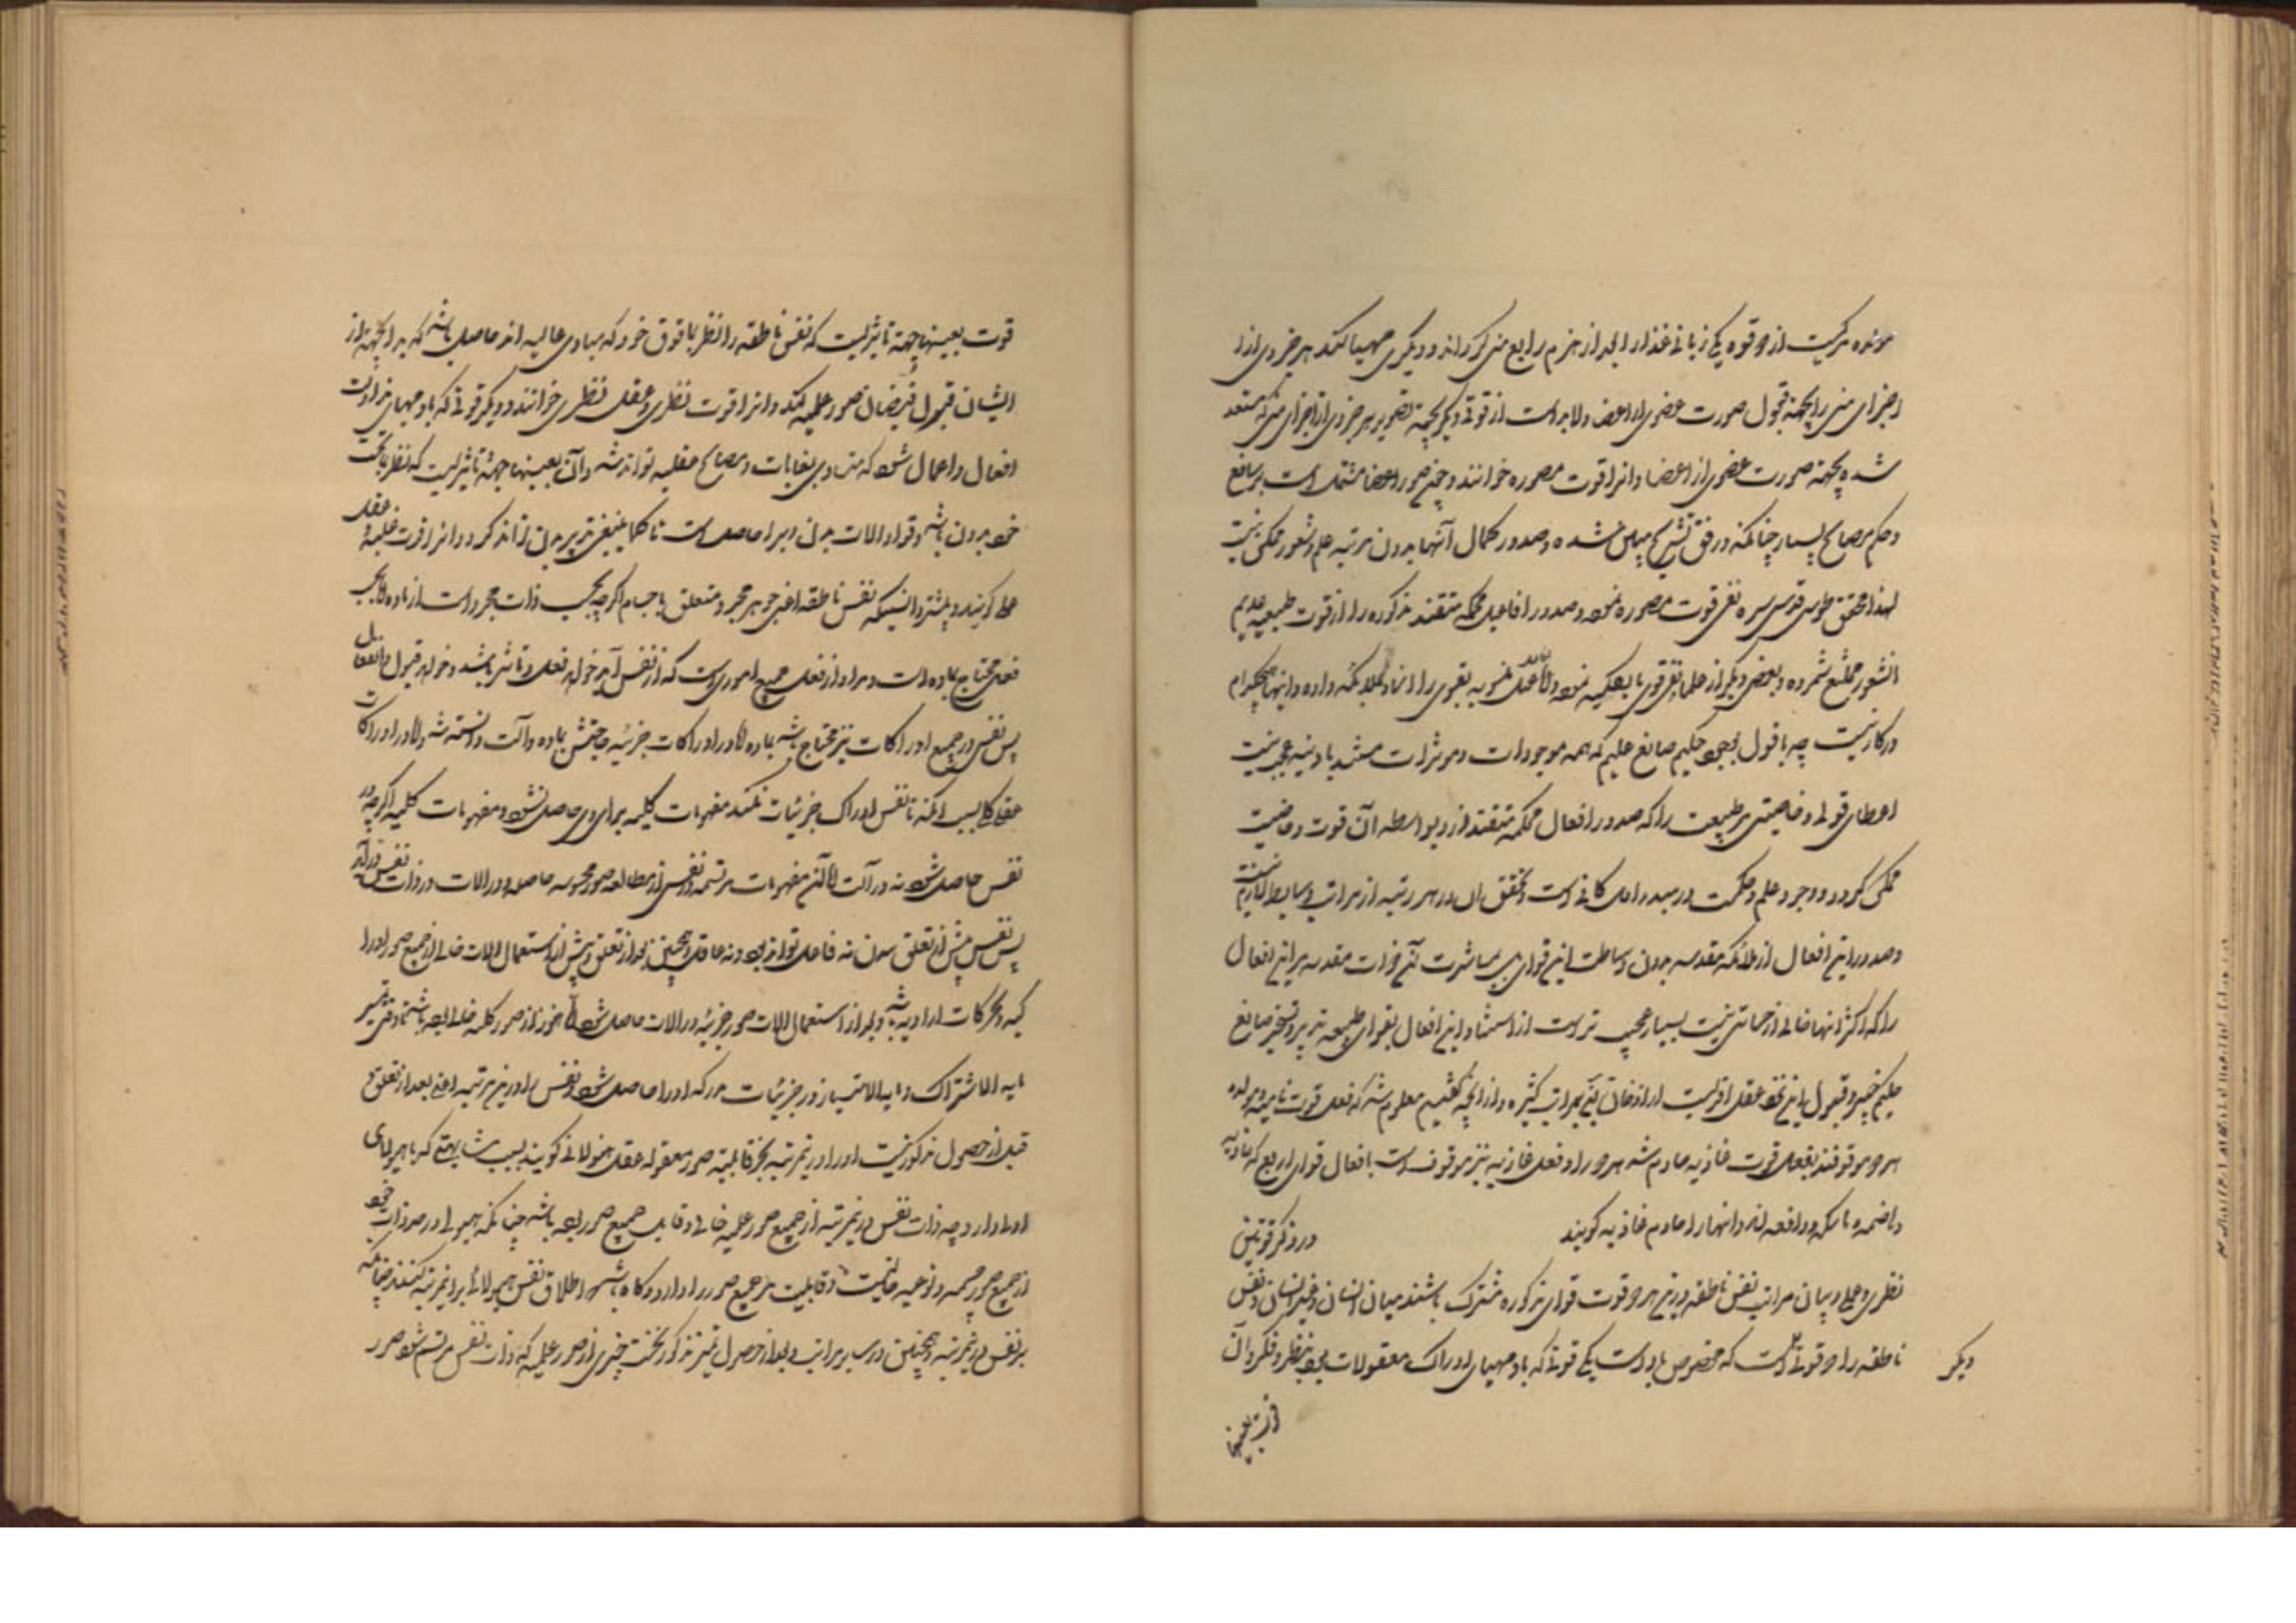 مولده مرکبست از دو قوه یکی زبانی غذا را بعد از هضم رابع منی گرداند و دیگری مهیا کند هر جزوی از
اجزای منی را بجهة قبول صورت عضوی از اعضا ولابد است از قوتی دیگر بجهة تصویر هر جزوی از اجزای منی که مستعد
شده بجهة صورت عضوی از اعضا و انرا قوت مصوره خوانند و چون صور اعضا مشتمل است بر منافع
و حکم و مصالح بسیار چنانکه در فن تشریح مبین شده و صدور کمال آنها بدون مرتبه علم و شعور ممکن نیست
لهذا محقق طوسی قدس سره نفی قوت مصوره نموده و صدور افاعیل محکمه متقنه مذکوره را از قوت طبیعیه عدیم
الشعور ممتنع شمرده و بعضی دیگر از علما نفی قوی بالکلیه نموده و افاعیل منسوبه بقوی را اسناد بملائکه داده و اینها هیچکدام
در کار نیست چه با قول بوجود حکیم صانع علیم که همه موجودات و موثرات مستند باوینه عجب نیست
اعطای قوتی و خاصیتی بر طبیعت را که صدور افعال محکمه متقنه از و بواسطه آن قوت و خاصیت
ممکن گردد و وجود علم و حکمت در مبدء اول کافی است و تحقق ان در هر مرتبه از مراتب وسایط لازم نیست
و صدور این افعال از ملائکه مقدسه بدون وساطت این قوای بی مباشرت آن ذوات مقدسه بر این افعال
را که اکثر انها خالی از خساستی نیست بسیار عجیب تر است از استناد این افعال بقوای طبیعیه بتدبیر و تسخیر صانع
حکیم خبیر و قبول این نحو عقل اقربست از اذعان آن بمراتب کثیره و از آنچه گفتیم معلوم شد که فعل قوت نامیه و مولده
هر دو موقوفند بفعل قوت غاذیه خادم شد هر دو را و فعل غاذیه نیز موقوف است بافعال قوای اربع که جاذبه
و هاضمه و ماسکه و دافعه اند و انها را خادم غاذیه گویند در ذکر قوتین
نظری و عملی و بیان مراتب نفس ناطقه و این هر دو قوت قوای مذکوره مشترک باشند میان انسان و غیر انسان و نفس
ناطقه را دو قوتی است که مخصوص باوست یکی قوتی که باو مهیای ادراک معقولات بود بنظر و فکر و آن
دیگر
قوت بعینها
قوت بعینها جهة تاثریست که نفس ناطقه را نظر بما فوق خود که مبادی عالیه اند حاصل باشد که بدان جهة از
ایشان قبول فیضان صور علمیه کند و انرا قوت نظری و عقل نظری خوانند و دیگر قوتی که باو مهیای مزاولت
افعال و اعمال شود که متادی بغایات و مصالح عقلیه تواند شد و آن بعینها جهة تاثیریست که نظر بما تحت
خود بدن باشد و قوا و الات بدنی و برا حاصلست تا کما ینبغی تدبیر بدن تواند کرد و انرا قوت عملیه و عقل
عملی گویند و بیشتر دانستیکه نفس ناطقه اعنی جوهر مجرد متعلق باجسام اگرچه بحسب ذات مجرد است از ماده اما بحسب
فعل محتاج بماده است و مراد از فعل جمیع اموریست که از نفس آید خواه فعل و تاثیر باشد و خواه قبول و انفعال
پس نفس در جمیع ادراکات نیز محتاج باشد بماده اما در ادراکات جزئیه حاجتش بماده و آلت دانسته شد و اما در ادراکات
عقلی کلی بسبب آنکه تا نفس ادراک جزئیات نکند مفهومات کلیه برای وی حاصل نشود و مفهومات کلیه اگرچه در
نفس حاصل شود نه در آلت اما آن مفهومات مرتسمه در نفس از مطالعه صور محسوسه حاصله در الات در ذات نفس درآید
پس نفس پیش از تعلق ببدن نه فاعل تواند بود و نه عاقل و همچنین بعد از تعلق و پیش از استعمال الات خالی از جمیع صور ادرا
کیه و حرکات ارادیه باشد و بعد از استعمال الات صور جزئیه در الات حاصل شود اما هنوز از صور کلیه خالی بود باشد تا وقتی تمییز
ما به الاشتراک و ما به الامتیاز در جزئیات مدرکه او را حاصل شود و نفس را درین مرتبه اعنی بعد از تعلق و
قبل از حصول مذکور نیست او را درین مرتبه بجز قابلیة صور معقوله عقل هیولانی گویند بسبب مشابهتی که با هیولای
اولی دارد چه ذات نفس درین مرتبه از جمیع صور علمیه خالی و قابل جمیع صور بود باشد چنانکه هیولی در حد ذات خود
از جمیع صور جسمیه و نوعیه خالیست و قابلیت جمیع صور را دارد و گاه باشد اطلاق نفس هیولانی بر این مرتبه کنند چنانکه
بر نفس درین مرتبه و همچنین در سایر مراتب و بعد از حصول تمیز مذکور نخست چیزی از صور علمیه که در ذات نفس مرتسم شود صور